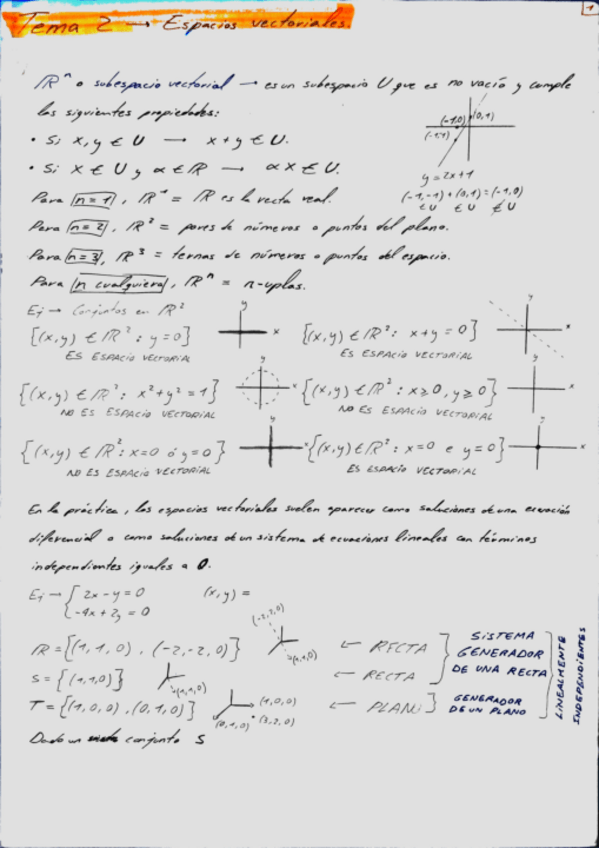 1
Tema 2 → Espacios vectoriales.
ℝⁿ o subespacio vectorial → es un subespacio U que es no vacío y cumple
las siguientes propiedades:
• Si x, y ∈ U → x+y ∈ U.
• Si x ∈ U y α ∈ ℝ → αx ∈ U.
(-1,0) (0,1)
(-1,-1)
y = 2x+1
(-1,-1) + (0,1) = (-1,0)
∈ U ∈ U ∉ U
Para n=1, ℝ¹ = ℝ es la recta real.
Para n=2, ℝ² = pares de números o puntos del plano.
Para n=3, ℝ³ = ternas de números o puntos del espacio.
Para n cualquiera, ℝⁿ = n-uplas.
Ej → Conjuntos en ℝ²
{(x,y) ∈ ℝ² : y=0} y x {(x,y) ∈ ℝ² : x+y=0} y x
ES ESPACIO VECTORIAL ES ESPACIO VECTORIAL
{(x,y) ∈ ℝ² : x²+y²=1} y x {(x,y) ∈ ℝ² : x≥0, y≥0} y x
NO ES ESPACIO VECTORIAL NO ES ESPACIO VECTORIAL
{(x,y) ∈ ℝ² : x=0 ó y=0} y x {(x,y) ∈ ℝ² : x=0 e y=0} y x
NO ES ESPACIO VECTORIAL ES ESPACIO VECTORIAL
En la práctica, los espacios vectoriales suelen aparecer como soluciones de una ecuación
diferencial o como soluciones de un sistema de ecuaciones lineales con términos
independientes iguales a 0.
Ej → { 2x-y=0 (x,y) =
-4x+2y=0
R = {(1,1,0), (-2,-2,0)} (-2,-2,0) (1,1,0) ← RECTA
S = {(1,1,0)} (1,1,0) ← RECTA
SISTEMA
GENERADOR
DE UNA RECTA
T = {(1,0,0), (0,1,0)} (1,0,0) (0,1,0) (3,2,0) ← PLANO
GENERADOR
DE UN PLANO
LINEALMENTE
INDEPENDIENTES
Dado un conjunto S